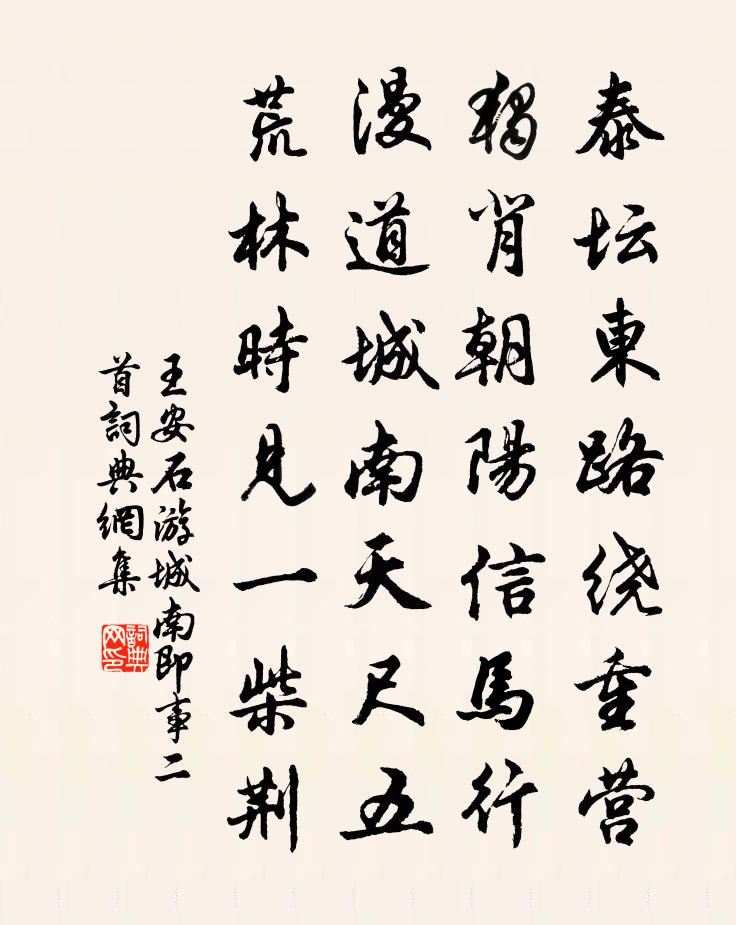 泰坛東路绕重营
獨背朝陽信馬行
漫道城南天尺五
荒林時見一柴荆
王安石游城南即事二
首詞典網集
詞典網印